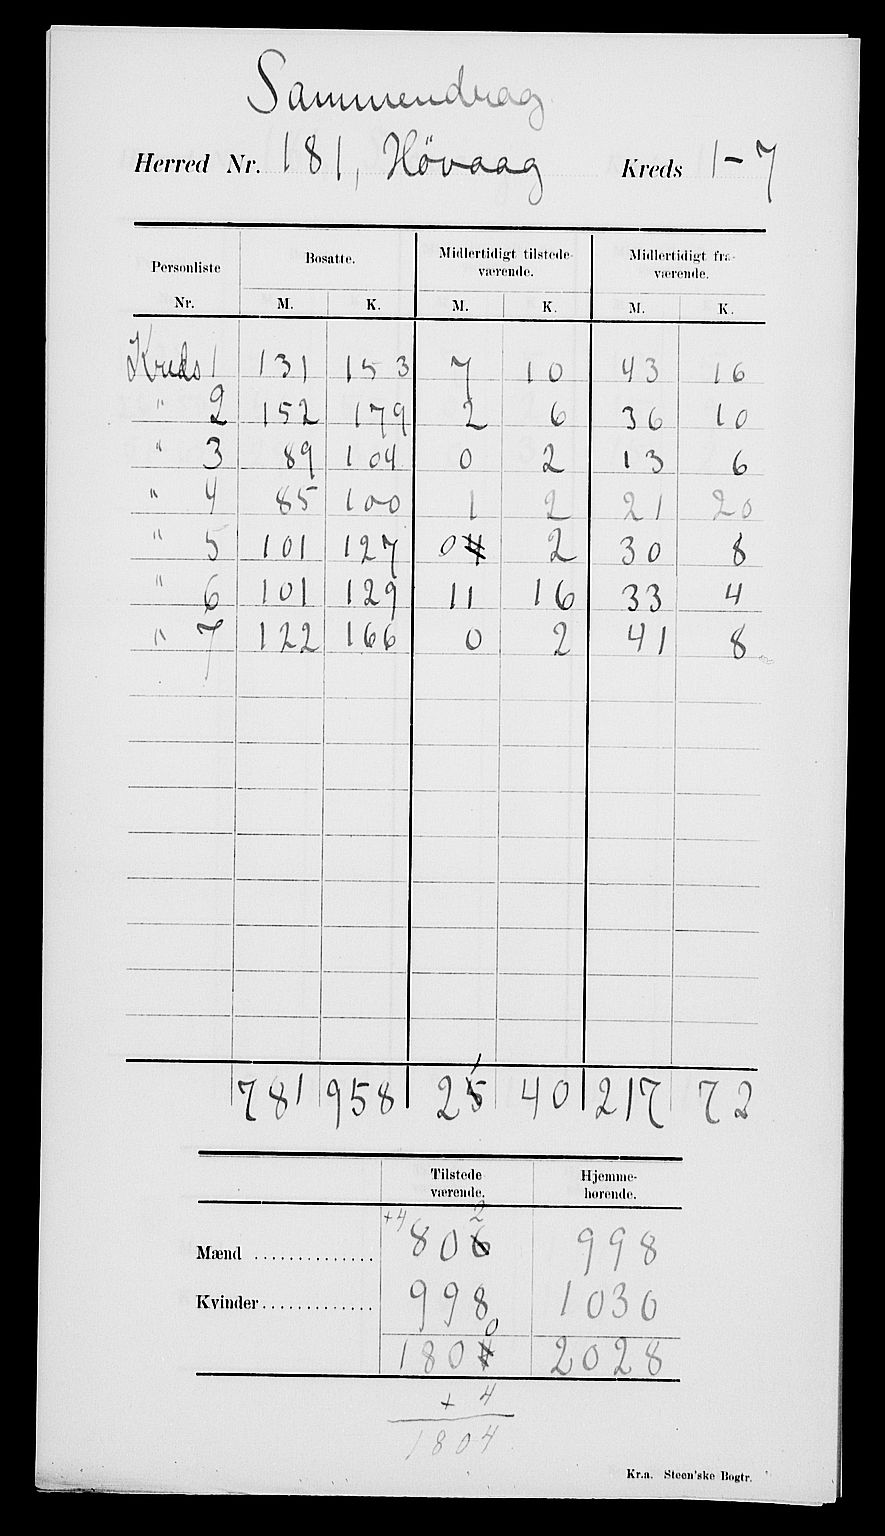 Sammendrag
Herred Nr. 181, Høvaag Kreds 1-7
Personliste Nr. Bosatte. Midlertidigt tilstede- værende. Midlertidigt fra- værende.
M. K. M. K. M. K.
Kreds 1 131 153 7 10 43 16
" 2 152 179 2 6 36 10
" 3 89 104 0 2 13 6
" 4 85 100 1 2 21 20
" 5 101 127 0 4 2 30 8
" 6 101 129 11 16 33 4
" 7 122 166 0 2 41 8
781 958 25 1 40 217 72
Tilstede værende. Hjemme- hørende.
+4 2
Mænd 806 998
Kvinder 998 1030
0
1804 2028
+ 4
1804
Kr.a. Steen'ske Bogtr.